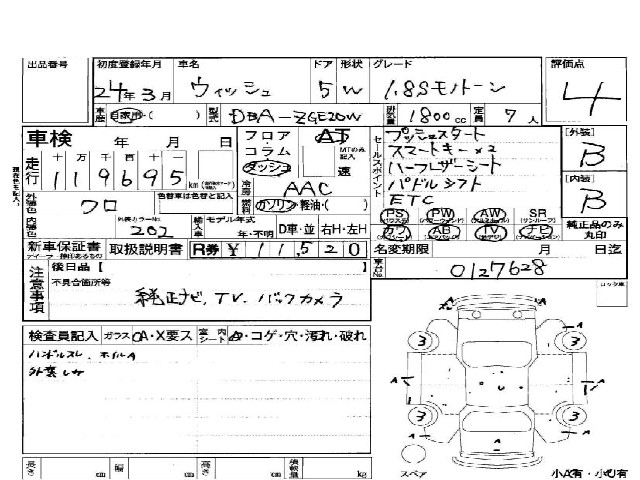 出品番号 初度登録年月 車名 ドア 形状 グレード 評価点
24年3月 ウィッシュ 5 W 1.8Sモノトーン 4
車歴 自家用・( ) 型式 DBA-ZGE20W 排気量 1800cc 定員 7人
車検 年 月 日 フロア・コラム ダッシュ AT MTのみ記入 速
走行 十 万 千 百 十 一
119695km
冷房 AAC
燃料 ガソリン・軽油・( )
セールスポイント
プッシュスタート
スマートキー×2
ハーフレザーシート
パドルシフト
ETC
[外装] B
[内装] B
外装色 クロ 色替車は色替と記入
内装色 外装カラーNo. 202
輸入車 モデル年式 年・不明 D車・並 右H・左H
PS PW AW SR
カワ AB TV ナビ 純正品のみ丸印
新車保証書 取扱説明書 R券 ¥11,520
名変期限 月 日迄
車台No. 0127628
注意事項
後日品[ ]
不具合箇所等
純正ナビ、TV、バックカメラ
ロック車
検査員記入 ガラス OA・X要ス 室内シート・コゲ・穴・汚れ・破れ
ハンドルスレ、ホイルA
長さ cm 幅 cm 高さ cm 積載量 kg
A
3 3
A A
3 3
スペア
小A有・小U有